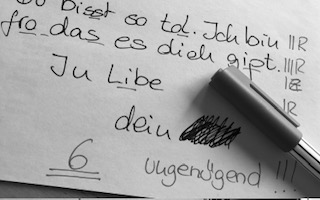 Du bisst so tol. Ich bin IIR
fro das es dich gipt. IIIR
In Libe IR
IR
dein
6 Ungenügend !!!